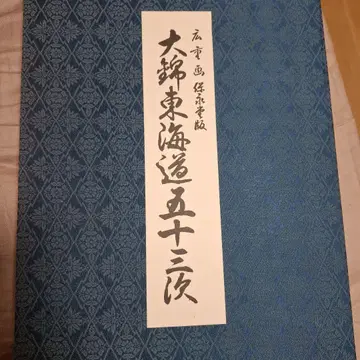 広重画 保永堂版
大錦東海道五十三次